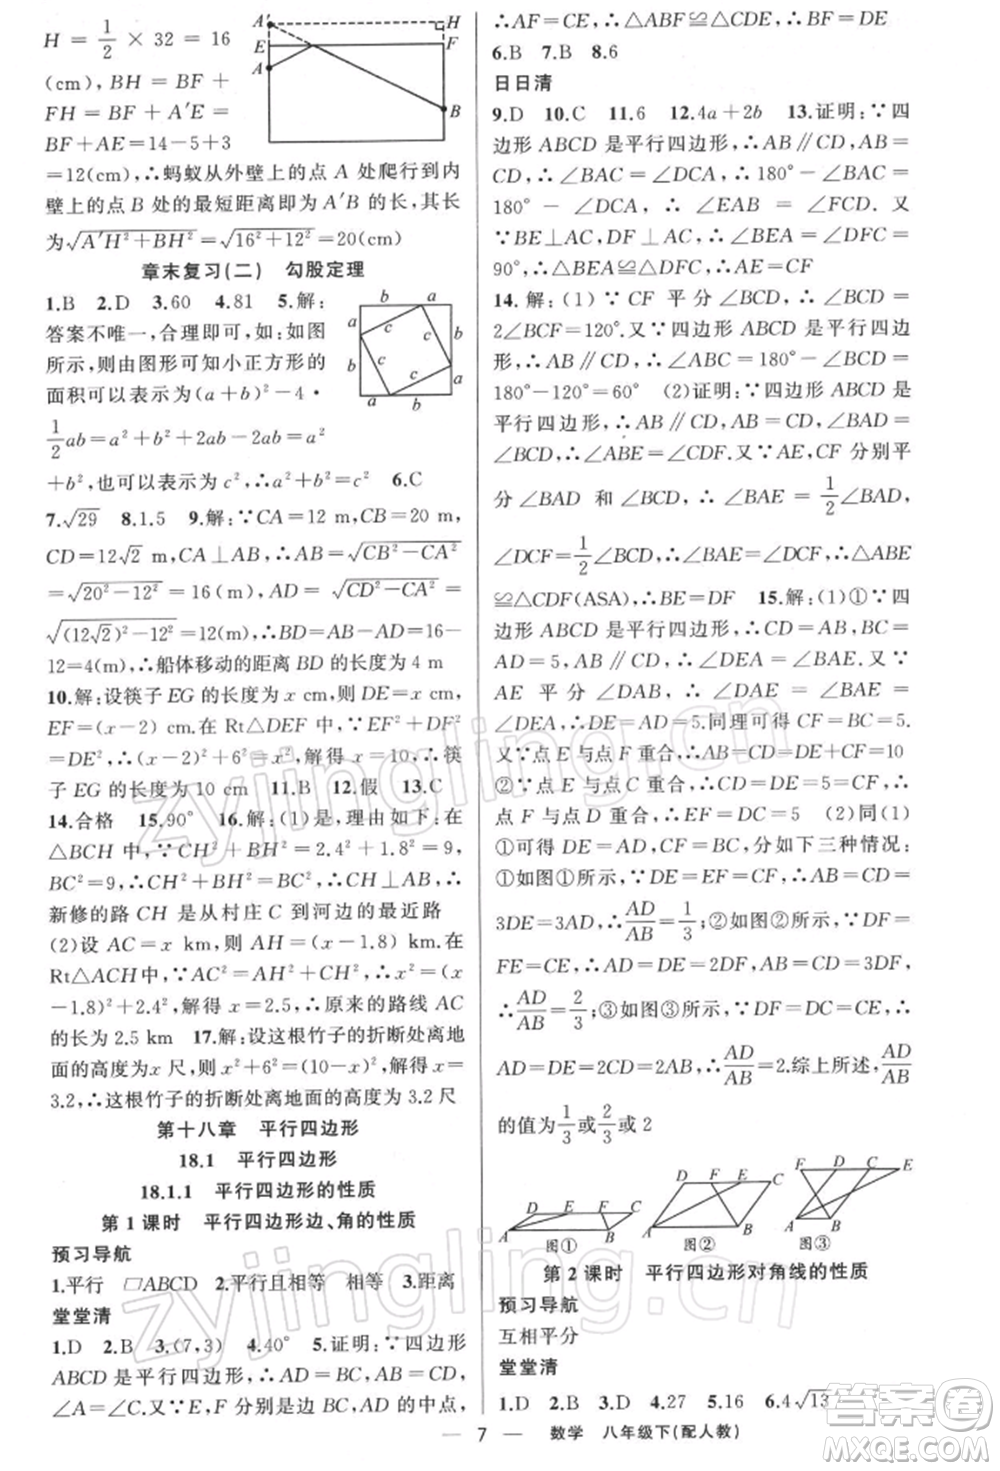 H = 1/2 × 32 = 16
(cm), BH = BF +
FH = BF + A′E =
BF + AE = 14 - 5 + 3
= 12(cm), ∴蚂蚁从外壁上的点 A 处爬行到内
壁上的点 B 处的最短距离即为 A′B 的长, 其长
为√(A′H² + BH²) = √(16² + 12²) = 20(cm)
A′ H E F A B
章末复习(二) 勾股定理
1.B 2.D 3.60 4.81 5.解:
答案不唯一, 合理即可, 如: 如图
所示, 则由图形可知小正方形的
面积可以表示为(a + b)² - 4 ·
1/2 ab = a² + b² + 2ab - 2ab = a²
+ b², 也可以表示为 c², ∴ c² = a² + b² 6.C
b a a c c b b c c a a b
7.√29 8.1.5 9.解: ∵CA = 12 m, CB = 20 m,
CD = 12√2 m, CA⊥AB, ∴AB = √(CB² - CA²)
= √(20² - 12²) = 16(m), AD = √(CD² - CA²) =
√((12√2)² - 12²) = 12(m), ∴BD = AB - AD = 16 -
12 = 4(m), ∴船体移动的距离 BD 的长度为 4 m
10.解: 设筷子 EG 的长度为 x cm, 则 DE = x cm,
EF = (x - 2) cm. 在 Rt△DEF 中, ∵EF² + DF² =
DE², ∴(x - 2)² + 6² = x², 解得 x = 10, ∴筷
子 EG 的长度为 10 cm 11.B 12.假 13.C
14.合格 15.90° 16.解: (1)是, 理由如下: 在
△BCH 中, ∵CH² + BH² = 2.4² + 1.8² = 9,
BC² = 9, ∴CH² + BH² = BC², ∴CH⊥AB, ∴
新修的路 CH 是从村庄 C 到河边的最近路
(2)设 AC = x km, 则 AH = (x - 1.8) km. 在
Rt△ACH 中, ∵AC² = AH² + CH², ∴x² = (x
- 1.8)² + 2.4², 解得 x = 2.5, ∴原来的路线 AC
的长为 2.5 km 17.解: 设这根竹子的折断处离地
面的高度为 x 尺, 则 x² + 6² = (10 - x)², 解得 x =
3.2, ∴这根竹子的折断处离地面的高度为 3.2 尺
第十八章 平行四边形
18.1 平行四边形
18.1.1 平行四边形的性质
第 1 课时 平行四边形边、角的性质
预习导航
1.平行 ▱ABCD 2.平行且相等 相等 3.距离
堂堂清
1.D 2.B 3.(7,3) 4.40° 5.证明: ∵四边形
ABCD 是平行四边形, ∴AD = BC, AB = CD,
∠A = ∠C. ∵E, F 分别是边 BC, AD 的中点,
∴AF = CE, ∴△ABF≌△CDE, ∴BF = DE
6.B 7.B 8.6
日日清
9.D 10.C 11.6 12.4a + 2b 13.证明: ∵四
边形 ABCD 是平行四边形, ∴AB∥CD, AB =
CD, ∴∠BAC = ∠DCA, ∴180° - ∠BAC =
180° - ∠DCA, ∴∠EAB = ∠FCD. 又
∵BE⊥AC, DF⊥AC, ∴∠BEA = ∠DFC =
90°, ∴△BEA≌△DFC, ∴AE = CF
14.解: (1)∵CF 平分∠BCD, ∴∠BCD =
2∠BCF = 120°. 又∵四边形 ABCD 是平行四边
形, ∴AB∥CD, ∴∠ABC = 180° - ∠BCD =
180° - 120° = 60° (2)证明: ∵四边形 ABCD 是
平行四边形, ∴AB∥CD, AB = CD, ∠BAD =
∠BCD, ∴∠ABE = ∠CDF. 又∵AE, CF 分别平
分∠BAD 和∠BCD, ∴∠BAE = 1/2∠BAD,
∠DCF = 1/2∠BCD, ∴∠BAE = ∠DCF, ∴△ABE
≌△CDF(ASA), ∴BE = DF 15.解: (1)①∵四
边形 ABCD 是平行四边形, ∴CD = AB, BC =
AD = 5, AB∥CD, ∴∠DEA = ∠BAE. 又∵
AE 平分∠DAB, ∴∠DAE = ∠BAE =
∠DEA, ∴DE = AD = 5. 同理可得 CF = BC = 5.
又∵点 E 与点 F 重合, ∴AB = CD = DE + CF = 10
②∵点 E 与点 C 重合, ∴CD = DE = 5. ∵CF = 5, ∴
点 F 与点 D 重合, ∴EF = DC = 5 (2)同(1)
①可得 DE = AD, CF = BC, 分如下三种情况:
①如图①所示, ∵DE = EF = CF, ∴AB = CD =
3DE = 3AD, ∴AD/AB = 1/3; ②如图②所示, ∵DF =
FE = CE, ∴AB = CD = 3DF, AD = DE = 2DF,
∴AD/AB = 2/3; ③如图③所示, ∵DF = DC = CE, ∴
AD = DE = 2CD = 2AB, ∴AD/AB = 2. 综上所述, AD/AB
的值为 1/3 或 2/3 或 2
D E F C A B 图①
D F E C A B 图②
F D C E A B 图③
第 2 课时 平行四边形对角线的性质
预习导航
互相平分
堂堂清
1.D 2.B 3.D 4.27 5.16 6.4√13
— 7 — 数学 八年级下(配人教)
zyjingling.cn
zyjingling.cn
答案卷